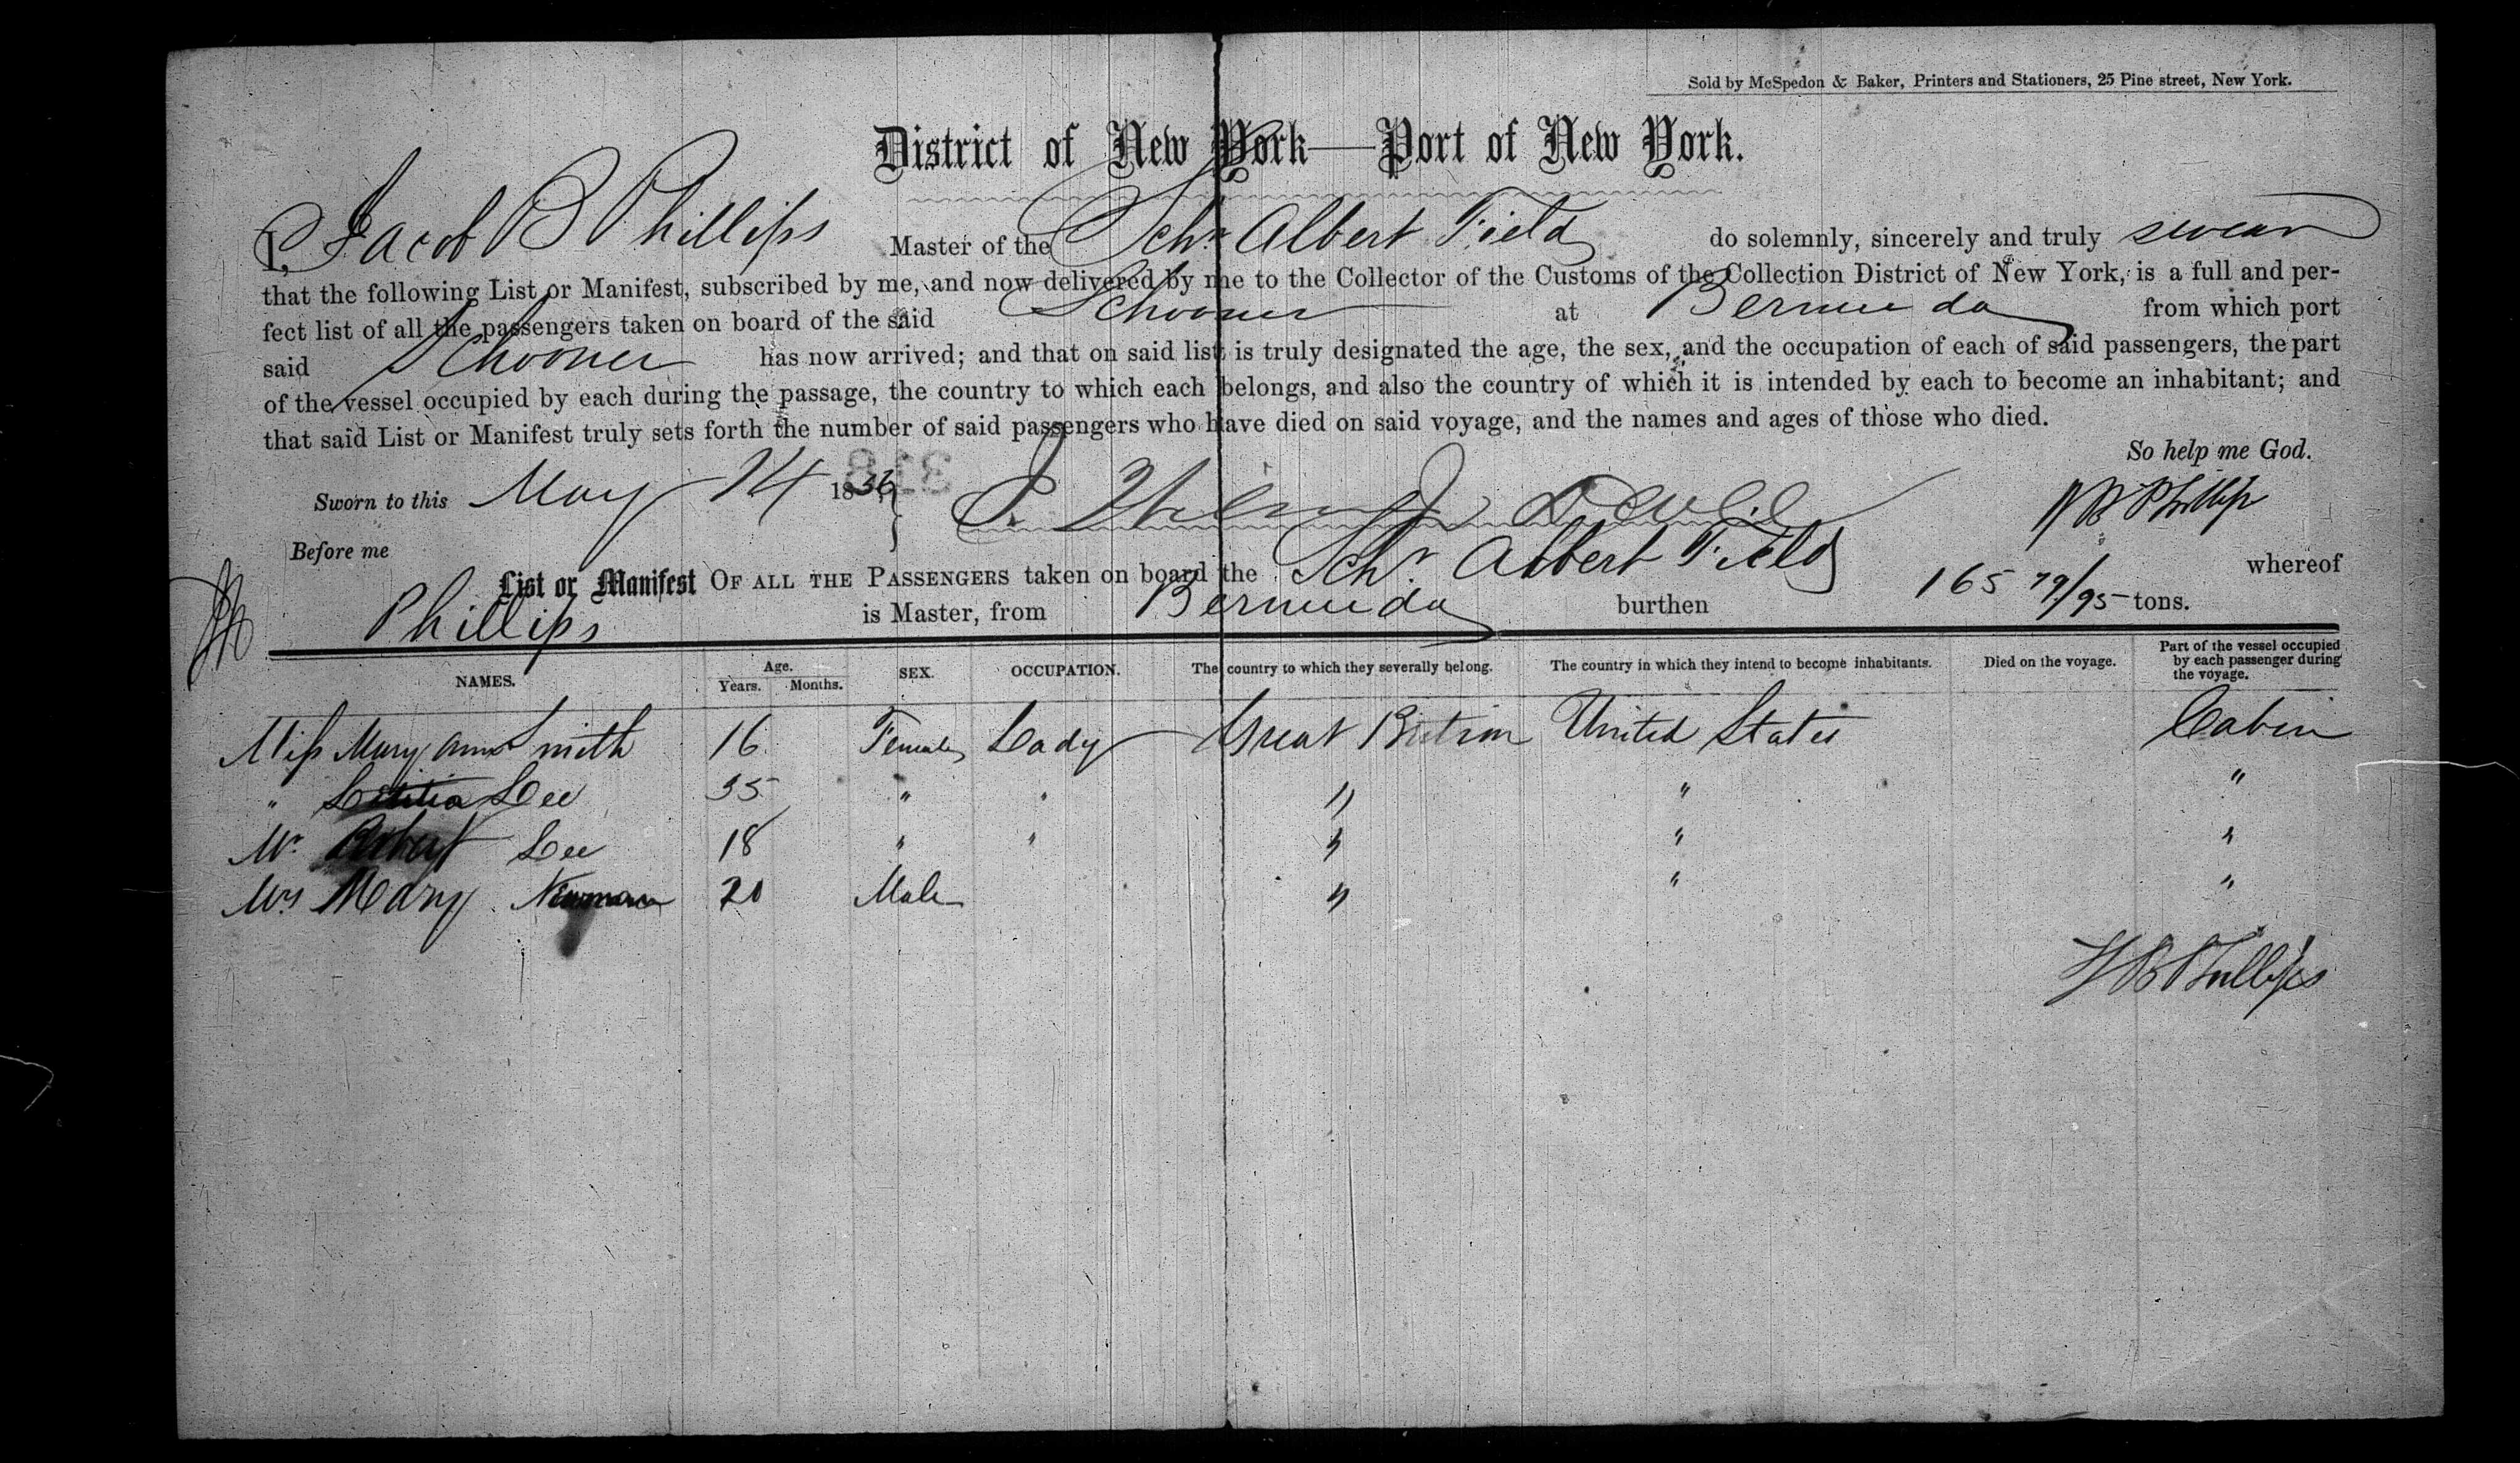 Sold by McSpedon & Baker, Printers and Stationers, 25 Pine street, New York.
District of New York—Port of New York.
I, Jacob B Phillips Master of the Schr Albert Field do solemnly, sincerely and truly swear
that the following List or Manifest, subscribed by me, and now delivered by me to the Collector of the Customs of the Collection District of New York, is a full and per-
fect list of all the passengers taken on board of the said Schooner at Bermuda from which port
said Schooner has now arrived; and that on said list is truly designated the age, the sex, and the occupation of each of said passengers, the part
of the vessel occupied by each during the passage, the country to which each belongs, and also the country of which it is intended by each to become an inhabitant; and
that said List or Manifest truly sets forth the number of said passengers who have died on said voyage, and the names and ages of those who died.
So help me God.
318
Sworn to this May 14 1856 J B Phillips
Before me
List or Manifest OF ALL THE PASSENGERS taken on board the Schr. Albert Field whereof
Phillips is Master, from Bermuda burthen 165 79/95 tons.
NAMES. Age. Years. Months. SEX. OCCUPATION. The country to which they severally belong. The country in which they intend to become inhabitants. Died on the voyage. Part of the vessel occupied by each passenger during the voyage.
Miss Mary Ann Smith 16 Female Lady Great Britain United States Cabin
" Letitia Lee 35 " " " " "
Mr. Lee 18 " " " " "
Mrs Mary Newman 20 Male " " "
J B Phillips